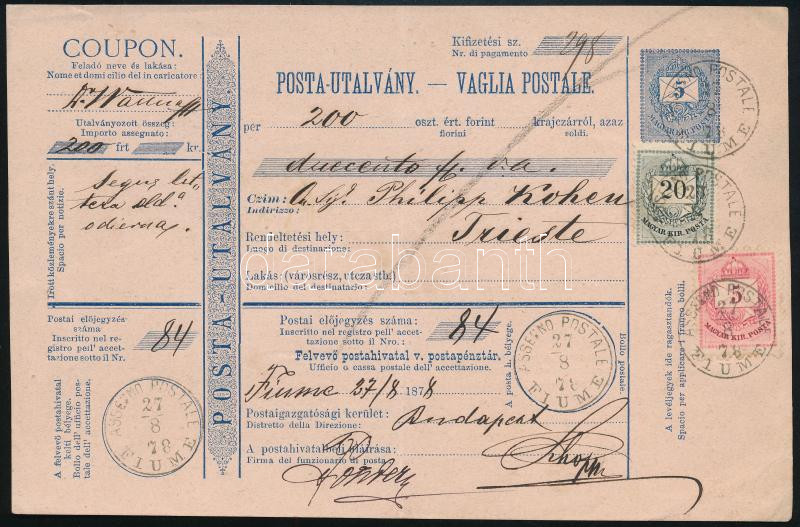 COUPON.
Feladó neve és lakása:
Nome et domicilio del in caricatore:
Utalványozott összeg:
Importo assegnato:
200 frt kr.
Segue let-
tera od.ª
odierna.
Irott közleményekre szánt hely.
Spazio per notizie.
Postai előjegyzés
száma
Inscritto nel re-
gistro pell' accet-
tazione sotto il Nr.
84
A felvevő postahivatal
kelti bélyege.
Bollo dell' ufficio pos-
tale dell' accettazione.
ASSEGNO POSTALE
27
8
78
FIUME
POSTA-UTALVÁNY.
Kifizetési sz.
Nr. di pagamento
298
POSTA-UTALVÁNY. — VAGLIA POSTALE.
per 200 oszt. ért. forint krajczárról, azaz
fiorini soldi.
duecento f. v.a.
Czim: Philipp Kohen
Indirizzo:
Rendeltetési hely: Trieste
Luogo di destinazione:
Lakás: (városrész, utcza stb.)
Domicilio del destinatario:
Postai előjegyzés száma:
Inscritto nel registro pell' accet-
tazione sotto il Nro.:
84
Felvevő postahivatal v. postapénztár.
Ufficio o cassa postale dell' accettazione.
Fiume 27/8 1878
Postaigazgatósági kerület: Budapest
Distretto della Direzione:
A postahivatalbeli aláirása:
Firma del funzionario di posta:
A posta h. bélyege.
Bollo postale
ASSEGNO POSTALE
27
8
78
FIUME
A levéljegyek ide ragasztandók.
Spazio per applicare i franco bolli.
5
MAGYAR KIR. POSTA
POSTALE
FIUME
20
MAGYAR KIR. POSTA
POSTALE
5
MAGYAR KIR. POSTA
ASSEGNO POSTALE
27
8
78
FIUME
darabanth